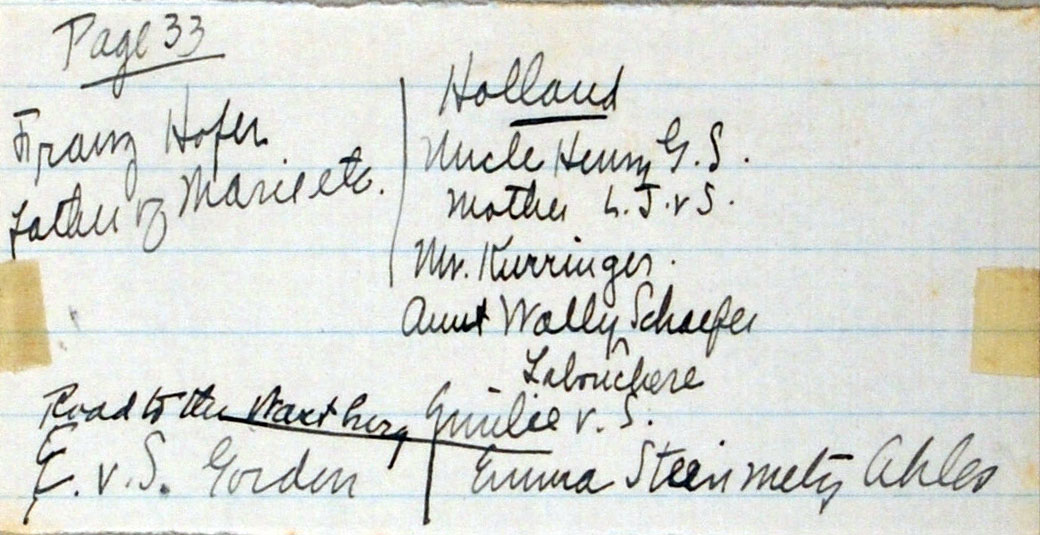 Page 33
Franz Hofer
father of Marie etc.
Holland
Uncle Henry G. S.
Mother L. J. v S.
Mr. Kurringer.
Aunt Wally Schaefer
Labouchere
Road to the Wartburg
Emilie v. S.
E. v. S. Gordon
Emma Steinmetz Ahles